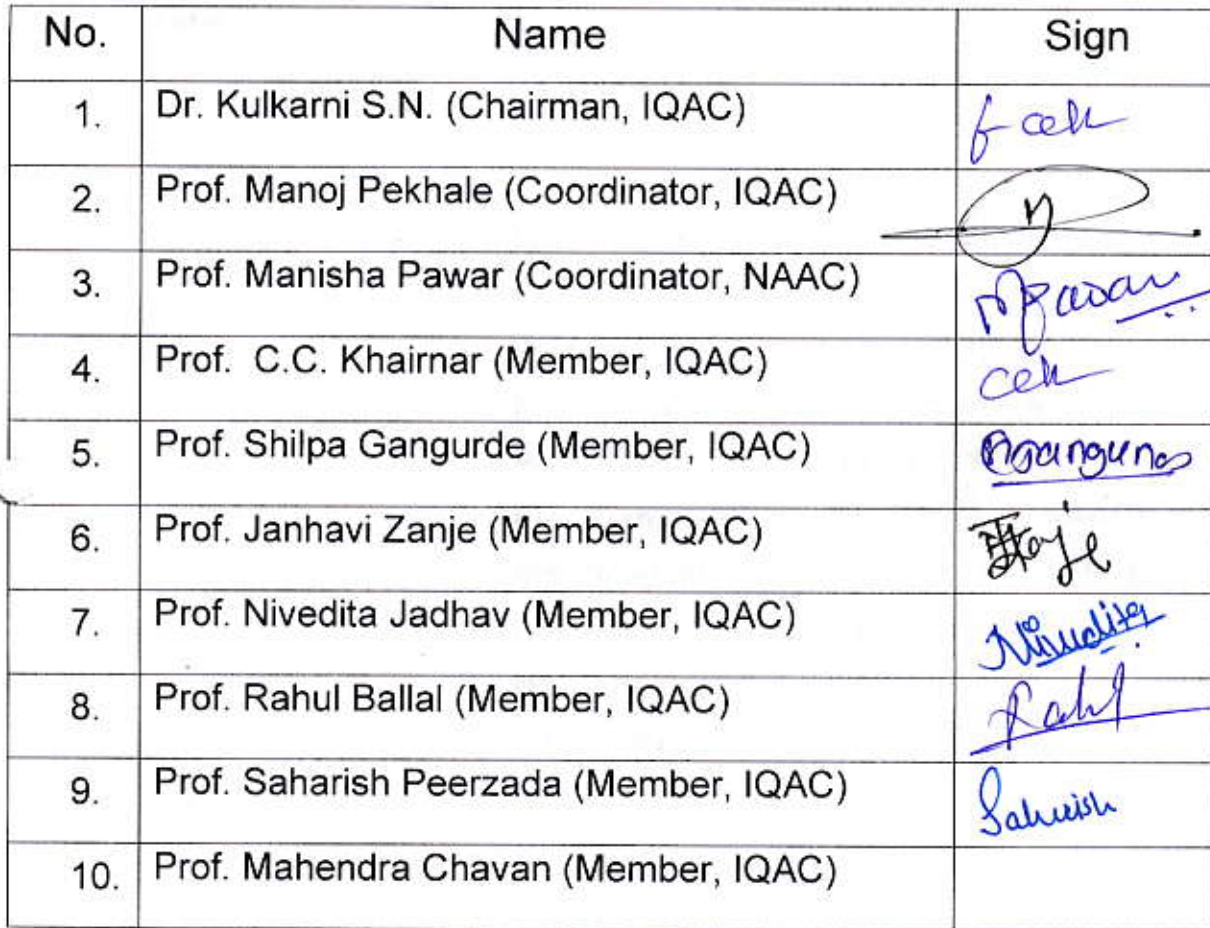 No. Name Sign
1. Dr. Kulkarni S.N. (Chairman, IQAC)
2. Prof. Manoj Pekhale (Coordinator, IQAC)
3. Prof. Manisha Pawar (Coordinator, NAAC)
4. Prof. C.C. Khairnar (Member, IQAC)
5. Prof. Shilpa Gangurde (Member, IQAC)
6. Prof. Janhavi Zanje (Member, IQAC)
7. Prof. Nivedita Jadhav (Member, IQAC) Nivedita
8. Prof. Rahul Ballal (Member, IQAC) Rahul
9. Prof. Saharish Peerzada (Member, IQAC)
10. Prof. Mahendra Chavan (Member, IQAC)